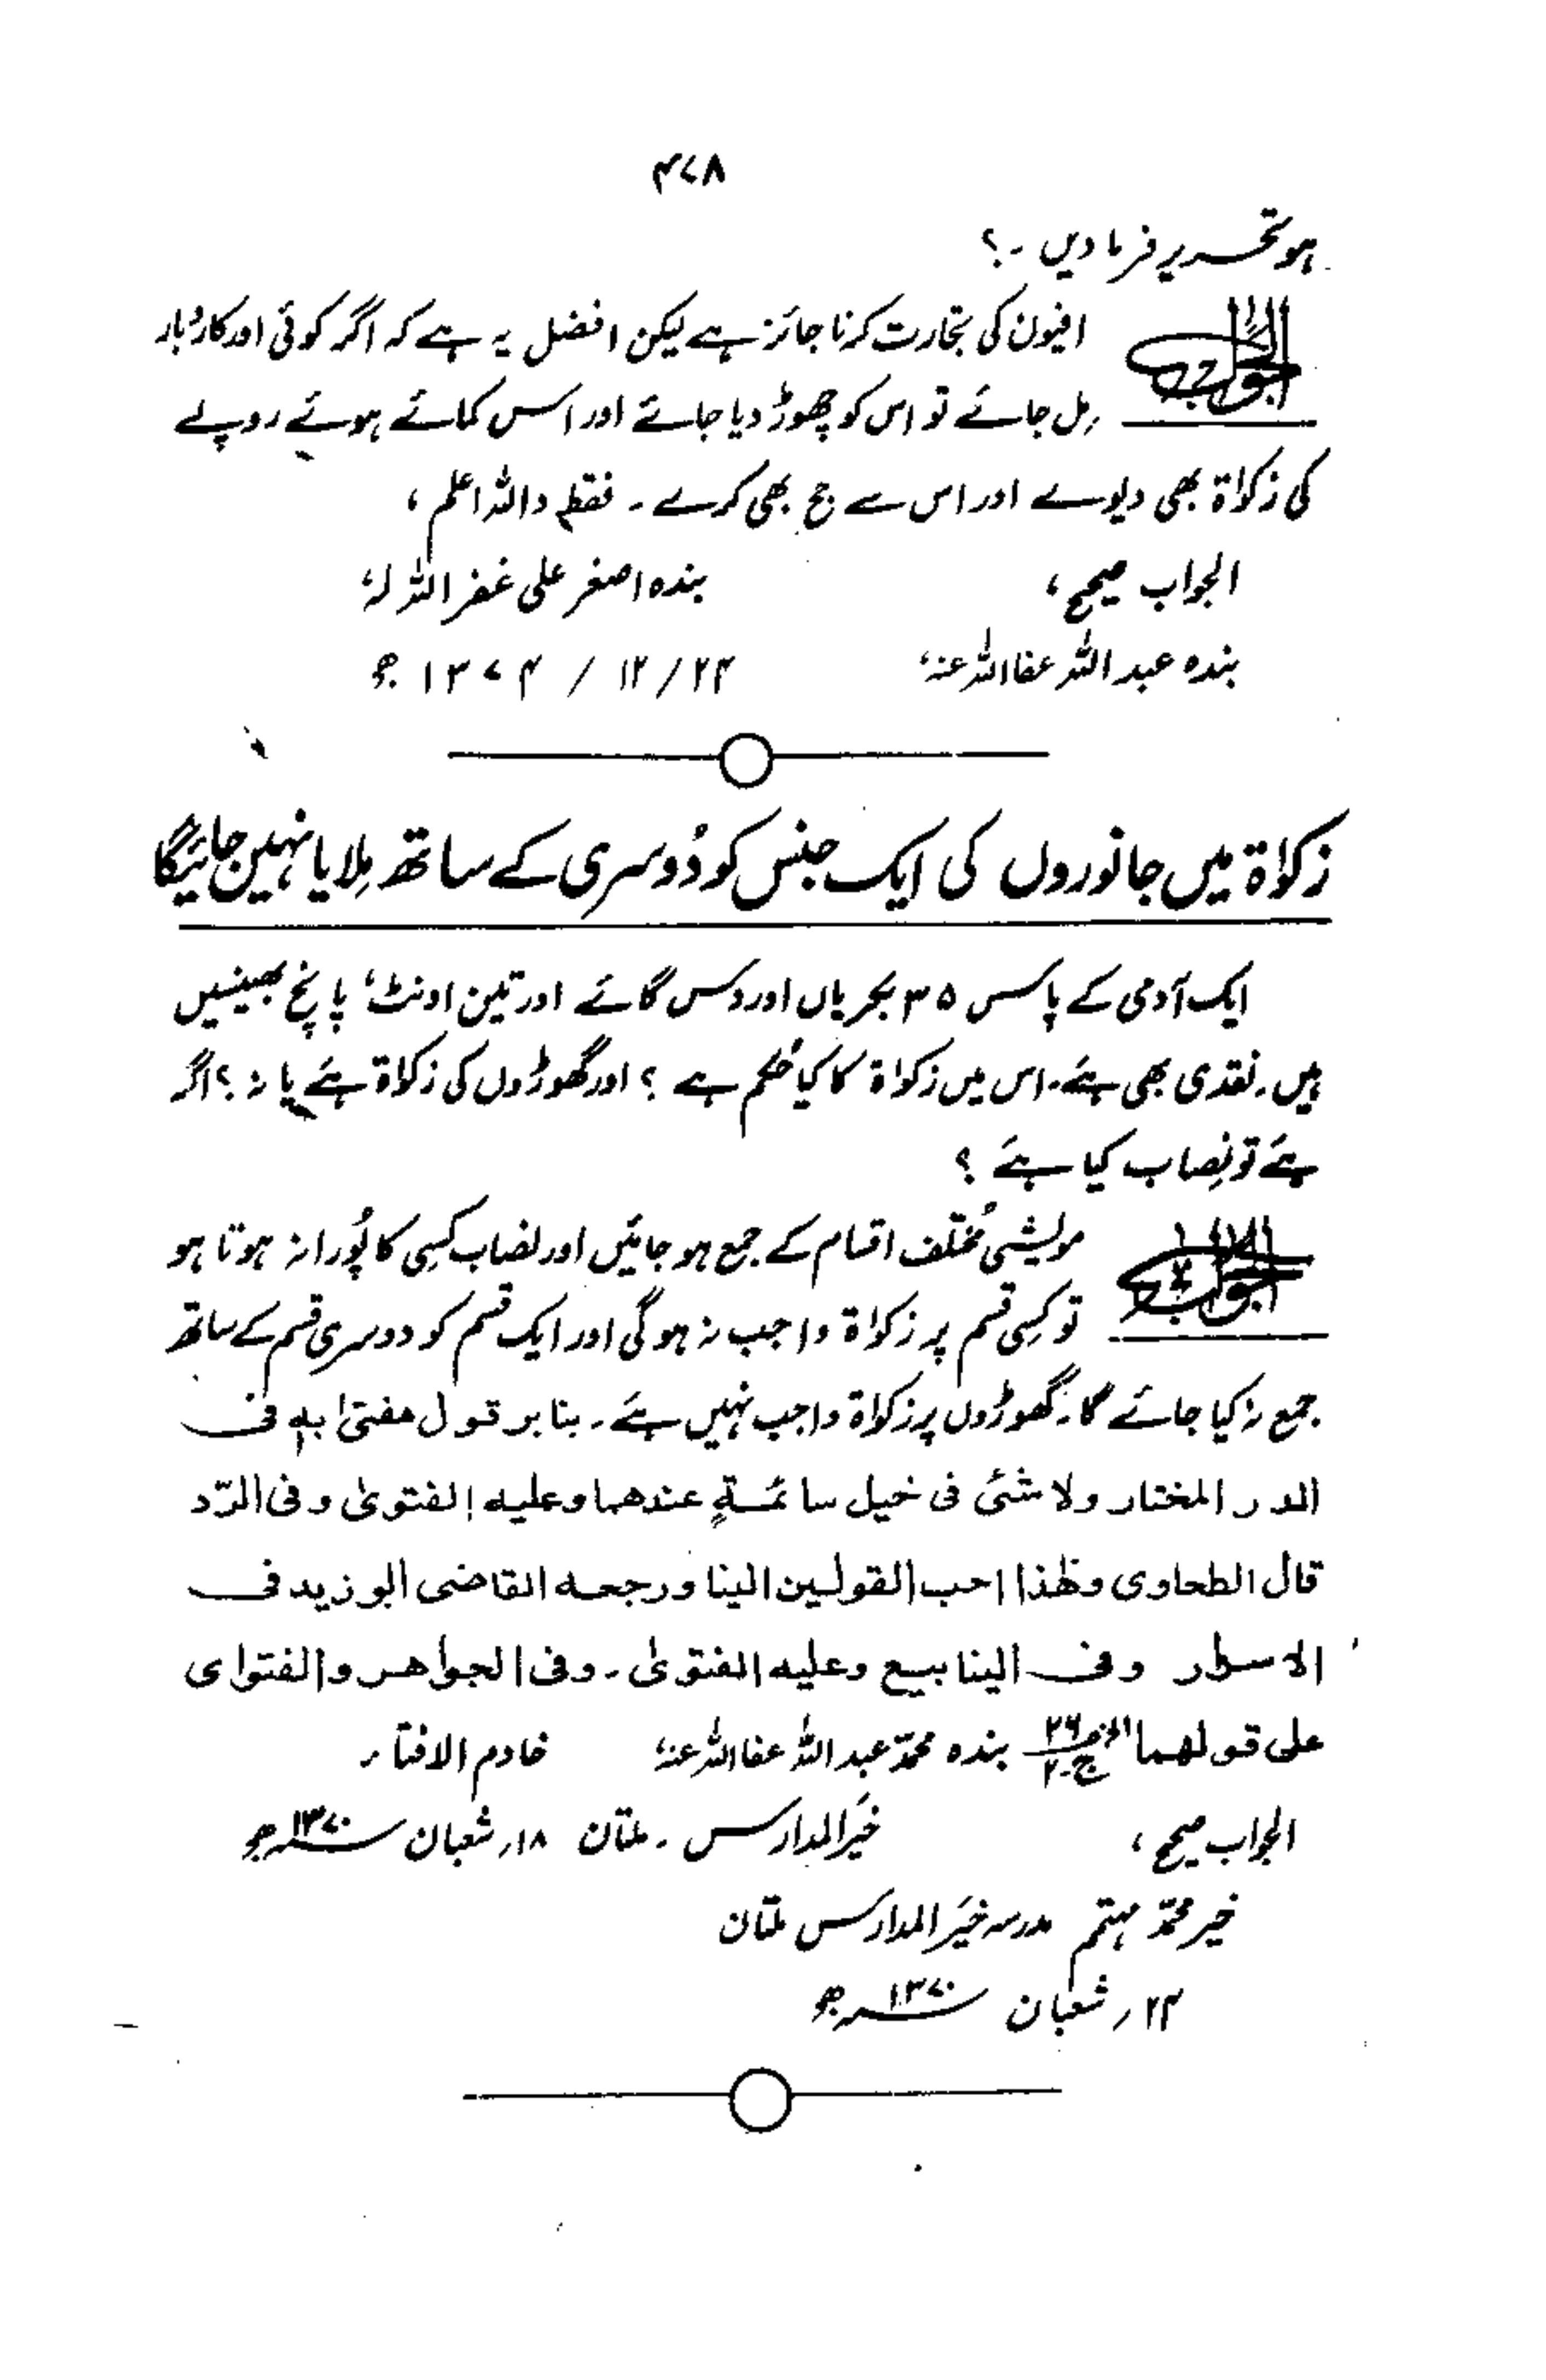 ۴۷۸
ہو تحریر فرمادیں ۔؟
الجواب افیون کی تجارت کرنا جائز ہے لیکن افضل یہ ہے کہ اگر کوئی اور کاروبار
مل جائے تو اس کو چھوڑ دیا جائے اور اس کمائے ہوئے روپے
کی زکواۃ بھی دیوے اور اس سے حج بھی کرے ۔ فقط واللہ اعلم ،
الجواب صحیح، بندہ اصغر علی غفر اللہ لہٗ
بندہ عبد اللہ عفا اللہ عنہٗ ۲۴/ ۱۲ / ۱۳۷۴ ھ
زکواۃ میں جانوروں کی ایک جنس کو دُوسری کے ساتھ مِلایا نہیں جائیگا
ایک آدمی کے پاس ۳۵ بکریاں اور دس گائے اور تین اونٹ، پانچ بھینسیں
ہیں۔ نقدی بھی ہے۔ اس میں زکواۃ کا کیا حُکم ہے ؟ اور گھوڑوں کی زکواۃ ہے یا نہ ؟ اگر
ہے تو نِصاب کیا ہے ؟
الجواب مویشی مُختلف اقسام کے جمع ہو جائیں اور نصاب کسِی کا پُورا نہ ہوتا ہو
تو کسِی قسم پر زکواۃ واجب نہ ہوگی اور ایک قسم کو دوسری قسم کے ساتھ
جمع نہ کیا جائے گا۔ گھوڑوں پر زکواۃ واجب نہیں ہے۔ بنا بر قول مفتیٰ بہٖ فی
الدر المختار ولا شئ فی خیل سائمۃٍ عندهما وعلیہ الفتویٰ وفی الرّد
قال الطحاوی وھٰذا احب القولین الینا ورجحہ القاضی ابو زید فی
الاسرار وفی الینابیع وعلیہ الفتویٰ۔ وفی الجواهر والفتوای
علی قولهما الخ ص۲۶ ج۲ بندہ محمّد عبد اللہ عفا اللہ عنہٗ خادم الافتاء
الجواب صحیح، خیَر المدارس ۔ ملتان ۱۸؍ شعبان ۱۳۷۰ھ
خیر محمّد مہتمم مدرسہ خیَر المدارس ملتان
۲۴؍ شعبان ۱۳۷۰ھ